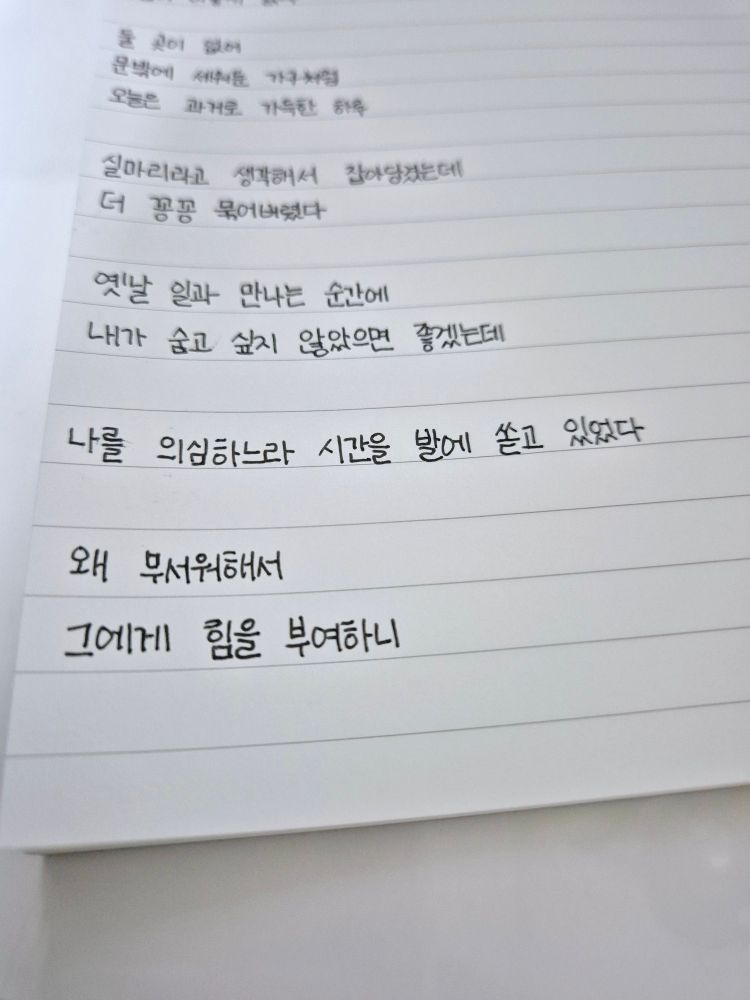 둘 곳이 없어
문밖에 세워둔 가구처럼
오늘은 과거로 가득한 하루
실마리라고 생각해서 잡아당겼는데
더 꽁꽁 묶어버렸다
옛날 일과 만나는 순간에
내가 숨고 싶지 않았으면 좋겠는데
나를 의심하느라 시간을 발에 쏟고 있었다
왜 무서워해서
그에게 힘을 부여하니